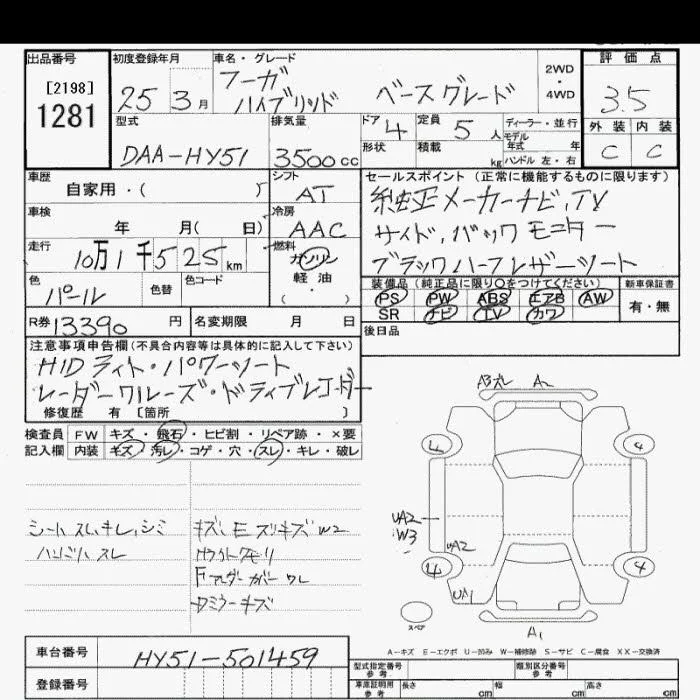 出品番号 初度登録年月 車名・グレード 評価点
[2198] 25 3月 フーガ 2WD
1281 ハイブリッド ベースグレード ・ 4WD 3.5
型式 排気量 ドア 4 定員 5人 ディーラー・並行 外装 内装
DAA-HY51 3500cc 形状 積載 kg モデル年式 年 C C
ハンドル 左・右
車歴 シフト セールスポイント (正常に機能するものに限ります)
自家用・( ) AT 純正メーカーナビ,TV
車検 冷房 サイド,バックモニター
年 月( 日) AAC ブラックハーフレザーシート
走行 燃料
10万1千525km ガソリン
色 色替 色コード 軽油 装備品(純正品に限り○をつけてください) 新車保証書
パール ( ・ ) PS PW ABS エアB AW 有・無
SR ナビ TV カワ
R券 13390円 名変期限 月 日 後日品
注意事項申告欄(不具合内容等は具体的に記入して下さい)
HIDライト・パワーシート
レーダークルーズ・ドライブレコーダー
修復歴 有 [箇所 ]
検査員 FW キズ・飛石・ヒビ割・リペア跡・×要
記入欄 内装 キズ・汚レ・コゲ・穴・スレ・キレ・破レ
A3ズレ A2
4 4
シートスレ,キレ,シミ キズ、Eスリキズ W2
スレ
Fアンダーカバー ワレ
ミラーキズ
UA2
W3
UA2
4 4
UA1
A1
スペア
A-キズ E-エクボ U-凹み W-補修跡 S-サビ C-腐食 XX-交換済
車台番号 HY51-501459
登録番号
型式指定番号 参考 類別区分番号 参考
車庫証明用 参考 長さ cm 幅 cm 高さ cm